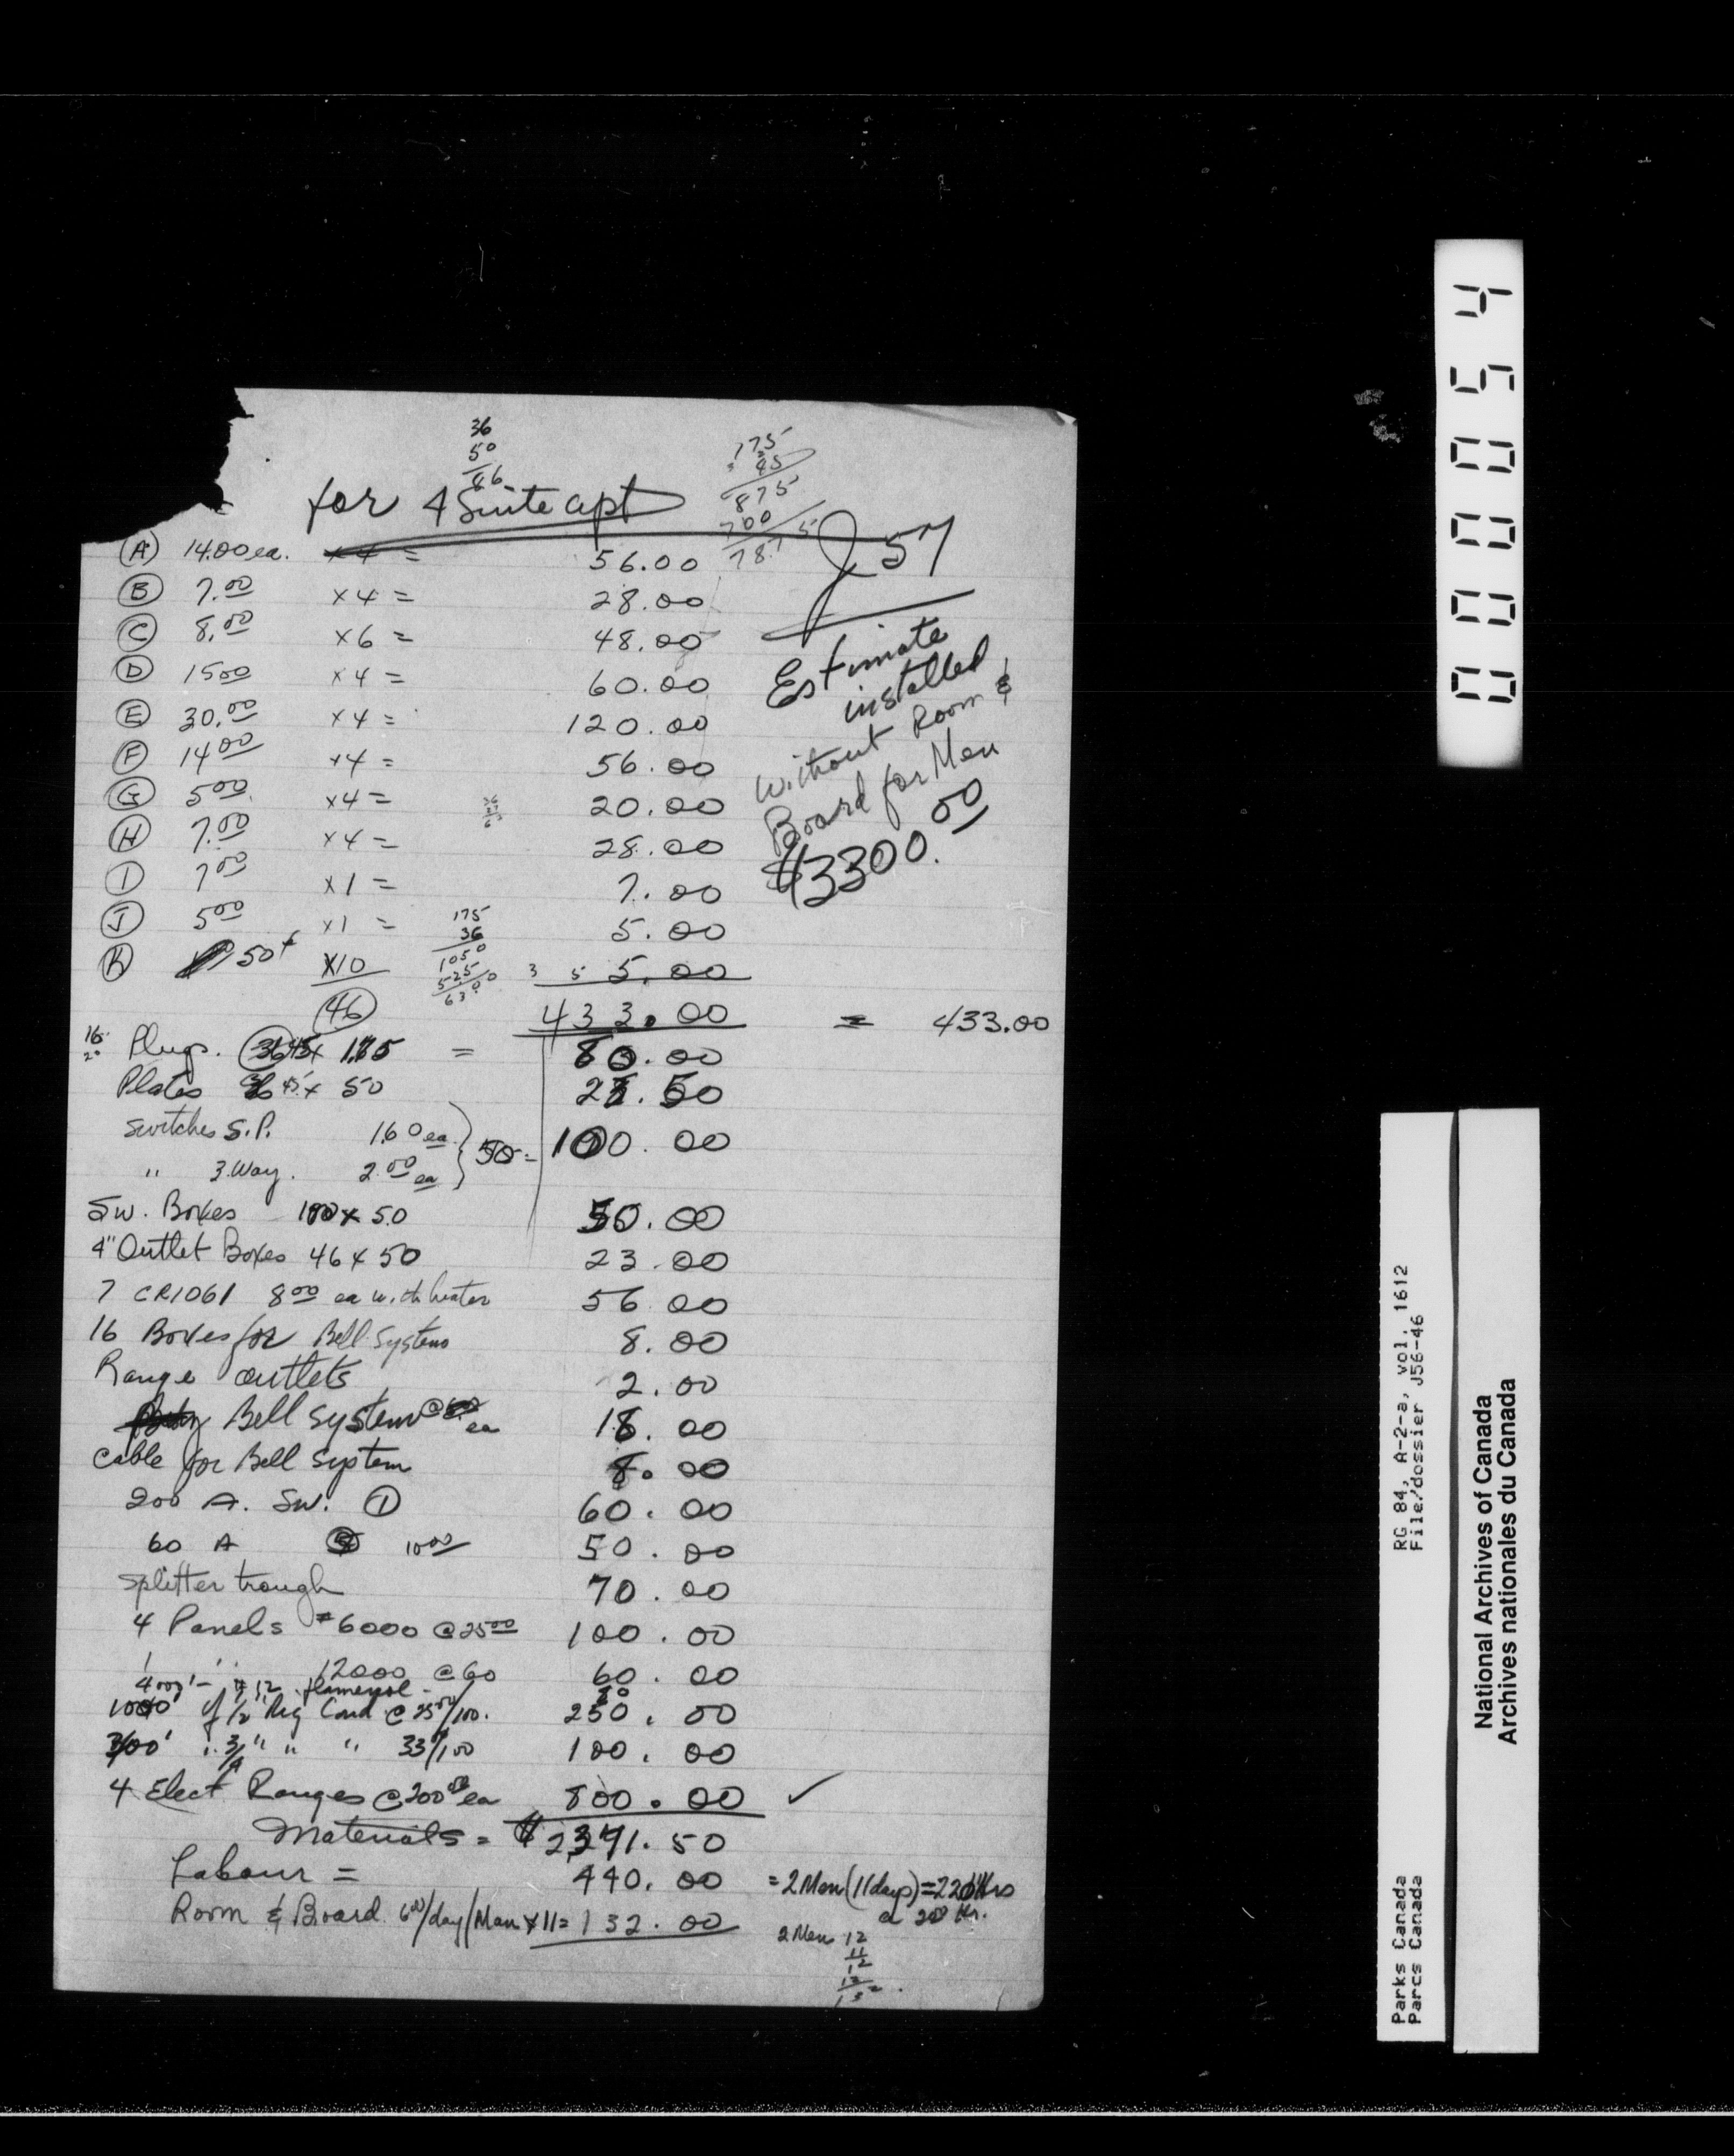 36
50
86
175
45
875
700
787 5
for 4 Suite apt
J 57
(A) 14.00 ea. x4 = 56.00
(B) 7.00 x4 = 28.00
(C) 8.00 x6 = 48.00
(D) 15.00 x4 = 60.00
(E) 30.00 x4 = 120.00
(F) 14.00 x4 = 56.00
(G) 5.00 x4 = 20.00
(H) 7.00 x4 = 28.00
(I) 7.00 x1 = 7.00
(J) 5.00 x1 = 5.00
(K) 50¢ x10 5.00
(46) 433.00 = 433.00
Estimate
installed
without Room &
Board for Men
$3300.00
175
36
1050
525
6300
16
20
Plugs. 45 x 1.75 = 80.00
Plates 45 x 50 .50
Switches S.P. 1.60 ea
" 3.Way. 2.00 ea } 50 = 100.00
Sw. Boxes 100 x 50 50.00
4" Outlet Boxes 46 x 50 23.00
7 CR1061 8.00 ea with heater 56.00
16 Boxes for Bell Systems 8.00
Range outlets 2.00
Bell System @ ea 18.00
Cable for Bell System 8.00
200 A. Sw. (1) 60.00
60 A 10.00 50.00
Splitter trough 70.00
4 Panels #6000 @ 25.00 100.00
1 " 12000 @ 60 60.00
400' - #12 flamenol -
1000' of 1/2" Rig Cond @ 25.00/100. 250.00
300' " 3/4" " " 33/100 100.00
4 Elect Ranges @ 200.00 ea 800.00 ✓
Materials = $2371.50
Labour = 440.00 = 2 Men (11 days) = 220 Hrs
a 2.00 Hr.
Room & Board 6.00/day/Man x 11 = 132.00
2 Men 12
11
12
12
132
00054
RG 84, A-2-a, vol. 1612
File/dossier J56-46
Parks Canada
Parcs Canada
National Archives of Canada
Archives nationales du Canada